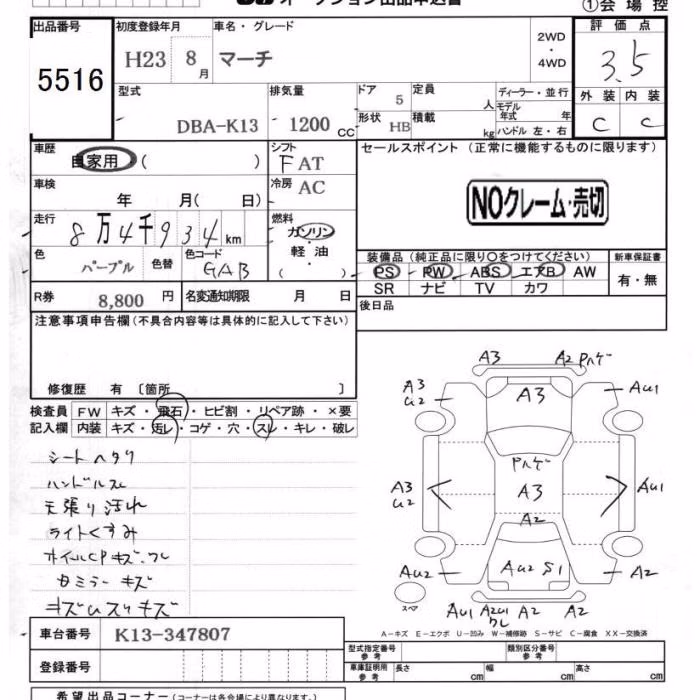 オークション出品申込書 ①会場控
出品番号 初度登録年月 車名・グレード 2WD ・ 4WD 評価点
5516 H23 8月 マーチ 3.5
型式 排気量 ドア 5 定員 人 ディーラー・並行 外装 内装
DBA-K13 1200cc 形状 HB 積載 kg モデル年式 年 ハンドル 左・右 C C
車歴 自家用 ( ) シフト FAT セールスポイント (正常に機能するものに限ります)
車検 年 月( 日) 冷房 AC NOクレーム・売切
走行 8万4千934km 燃料 ガソリン・軽油・( )
色 パープル 色替 色コード GAB
装備品(純正品に限り○をつけてください) 新車保証書
PS PW ABS エアB AW 有・無
SR ナビ TV カワ
R券 8,800円 名変通知期限 月 日 後日品
注意事項申告欄(不具合内容等は具体的に記入して下さい)
修復歴 有 〔箇所 〕
検査員 FW キズ・飛石・ヒビ割・リペア跡・×要
記入欄 内装 キズ・汚レ・コゲ・穴・スレ・キレ・破レ
シートヘタリ
ハンドルスレ
天張り汚れ
ライトくすみ
ホイルCPキズ・ワレ
Bミラーキズ
キズUスリキズ
A3 A2 Pハゲ
A3 U2 A3 AU1
Pハゲ
A3 U2 A3 AU1
A2
AU2 AU2 S1 A2
スペア AU1 A2U1 ワレ A2 A2
A-キズ E-エクボ U-凹み W-補修跡 S-サビ C-腐食 XX-交換済
車台番号 K13-347807
型式指定番号 参考 類別区分番号 参考
登録番号 車庫証明用 参考 長さ cm 幅 cm 高さ cm
希望出品コーナー(コーナーは各会場により異なります。)